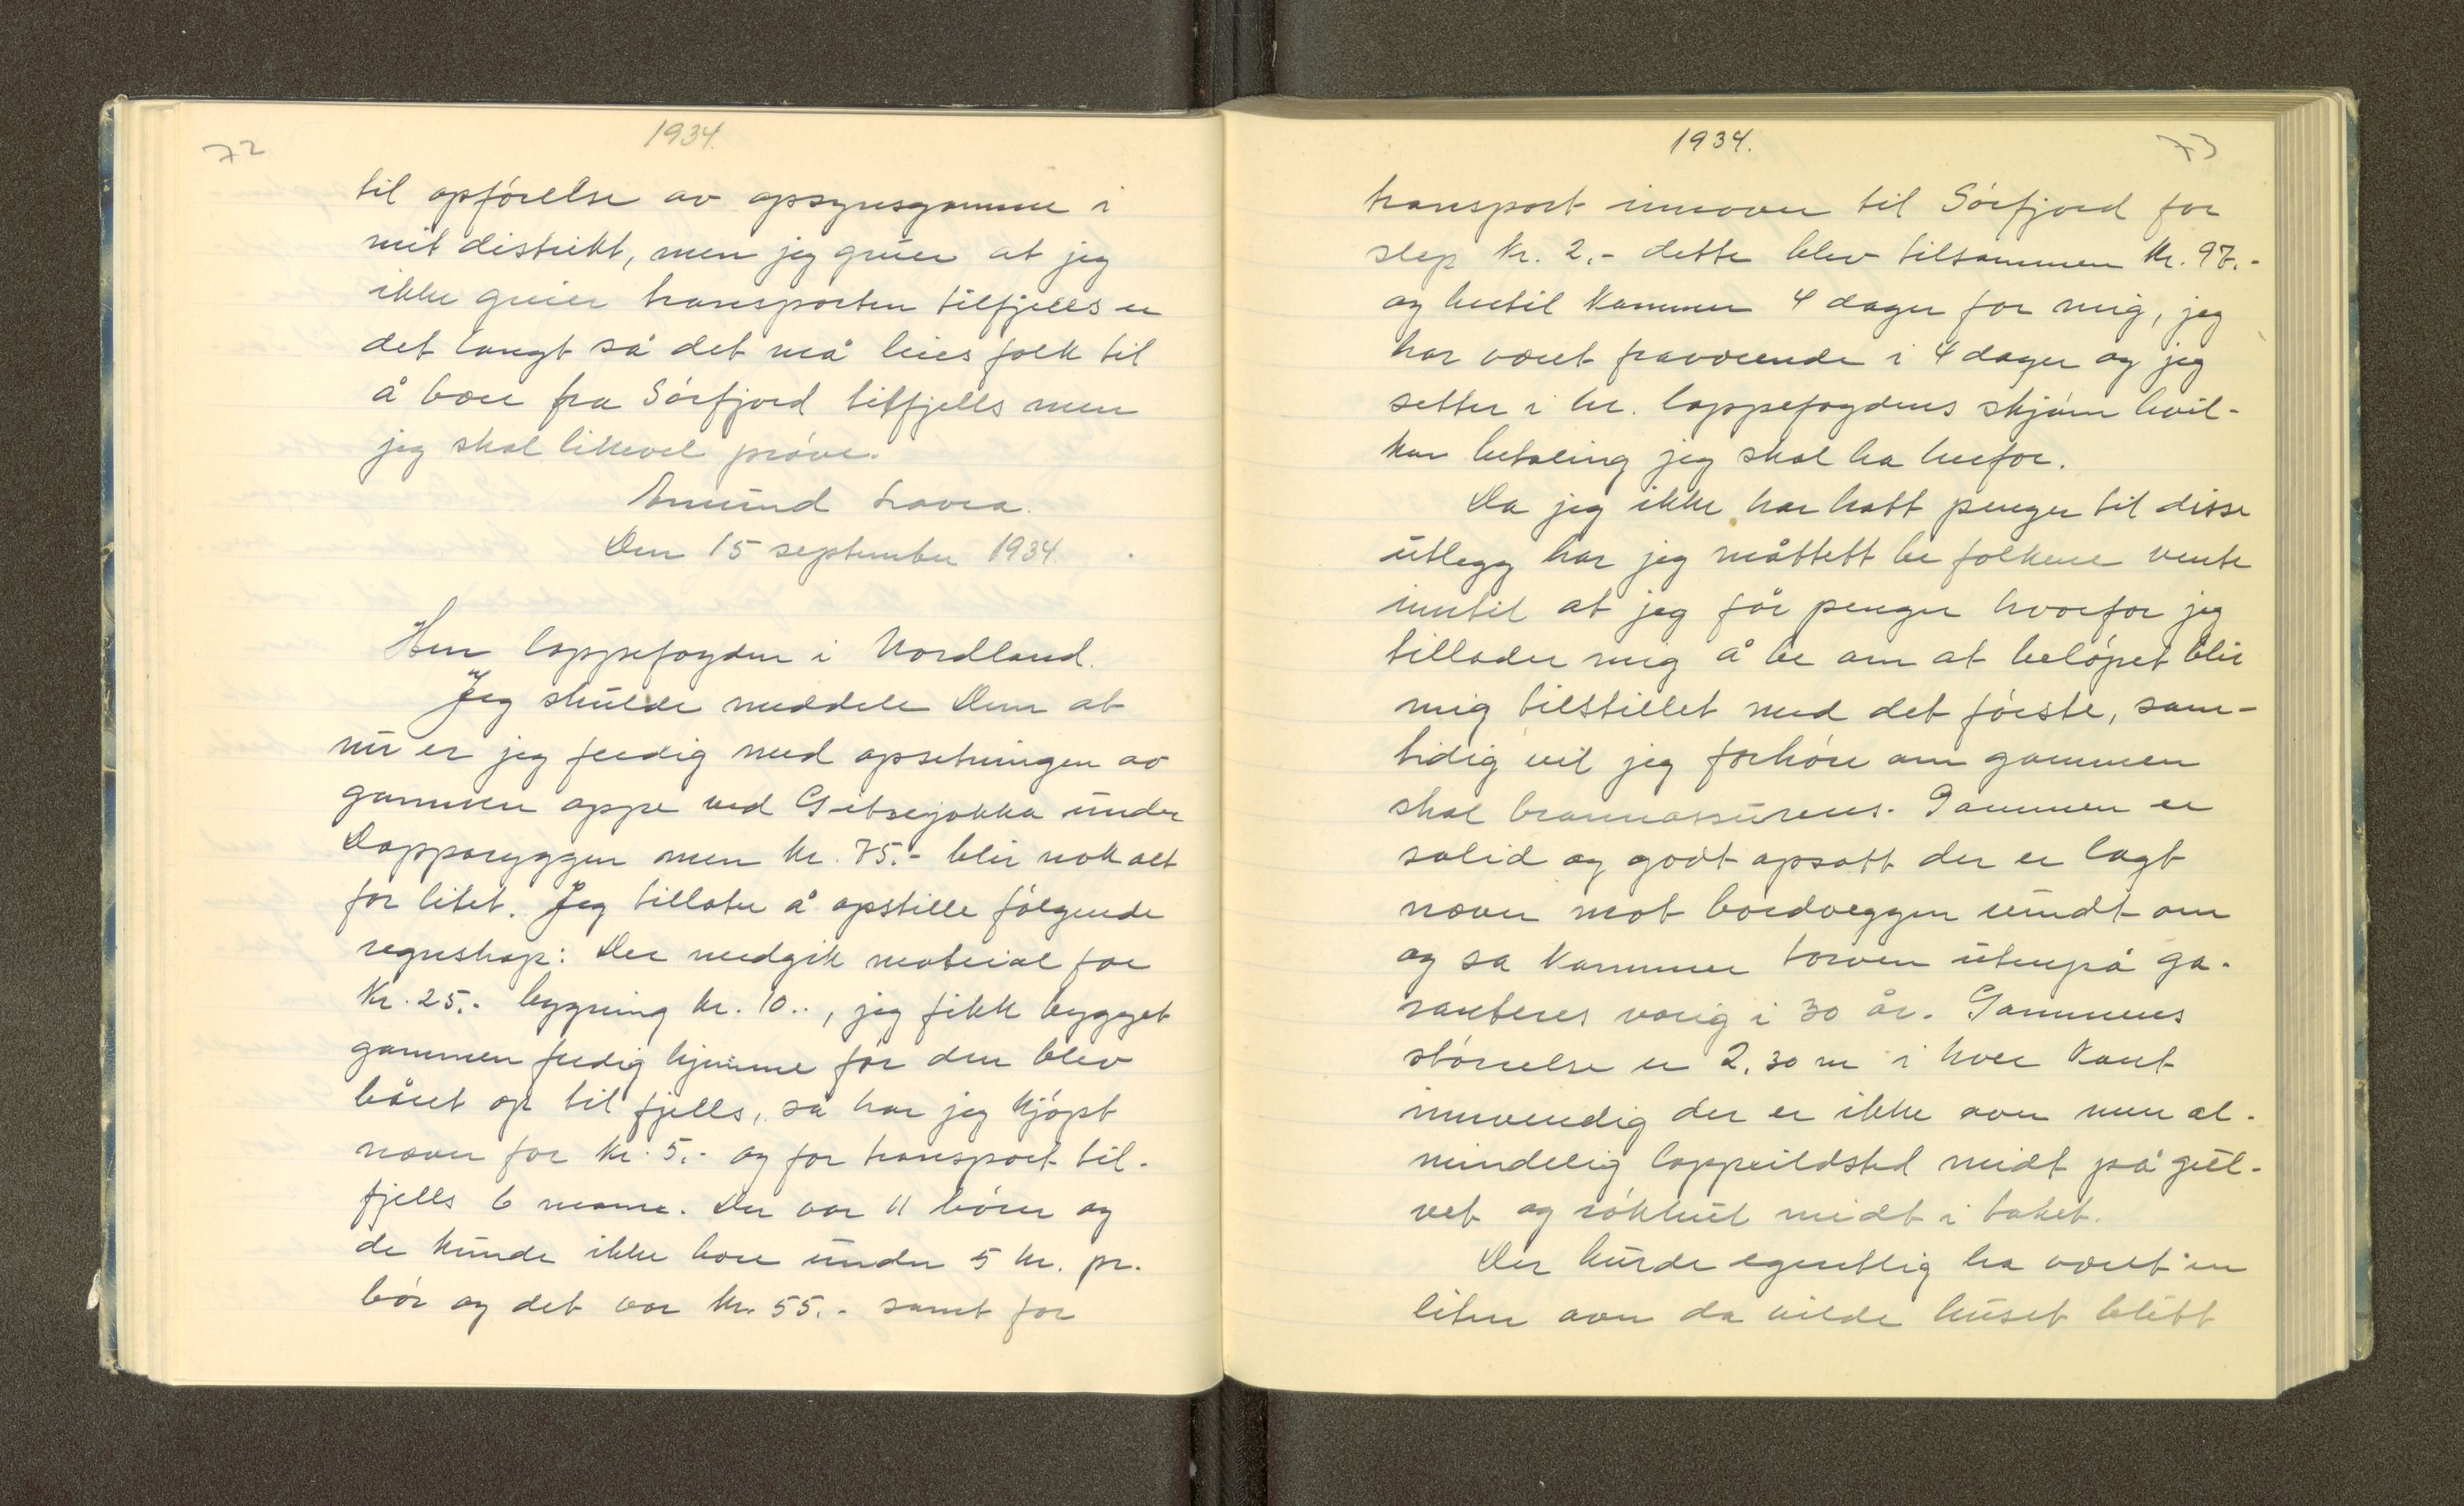 72
1934.
til opförelse av opsynsgamme i
mit distrikt, men jeg gruer at jeg
ikke greier transporten tilfjells er
det langt så det må leies folk til
å bære fra Sörfjord tilfjells men
jeg skal likevel pröve.
Amund
Den 15 september 1934.
Herr lappefogden i Nordland.
Jeg skulde meddele Dem at
nu er jeg ferdig med opsetningen av
gammen oppe ved Gitsejokka under
Dapparyggen men kr. 75.- blir nok alt
for litet. Jeg tillater å opstille fölgende
regnskap: Der medgik material for
kr. 25.- bygning kr. 10.-, jeg fikk bygget
gammen ferdig hjemme för den blev
båret op til fjells, så har jeg kjöpt
næver for kr. 5.- og for transport til-
fjells 6 manne. Der var 11 börer og
de kunde ikke bære under 5 kr. pr.
bör og det var kr. 55.- samt for
1934.
73
transport innover til Sörfjord for
slep kr. 2.- dette blev tilsammen kr. 97.-
og hertil kommer 4 dager for mig, jeg
har været fraværende i 4 dager og jeg
setter i hr. lappefogdens skjönn hvil-
ken betaling jeg skal ha herfor.
Da jeg ikke har hatt penger til disse
utlegg har jeg måttett be folkene vente
inntil at jeg får penger hvorfor jeg
tillader mig å be om at belöpet blir
mig tilstillet med det förste, sam-
tidig vil jeg forhöre om gammen
skal brannassureres. Gammen er
solid og godt opsatt der er lagt
næver mot bordveggen rundt om
og sa kommer torven utenpå ga-
ranteres varig i 30 år. Gammens
störrelse er 2,30 m i hver kant
innvendig der er ikke ovn men al-
mindelig lappeildsted midt på gul-
vet og rökhul midt i taket.
Der burde egentlig ha været en
liten ovn da vilde huset blitt